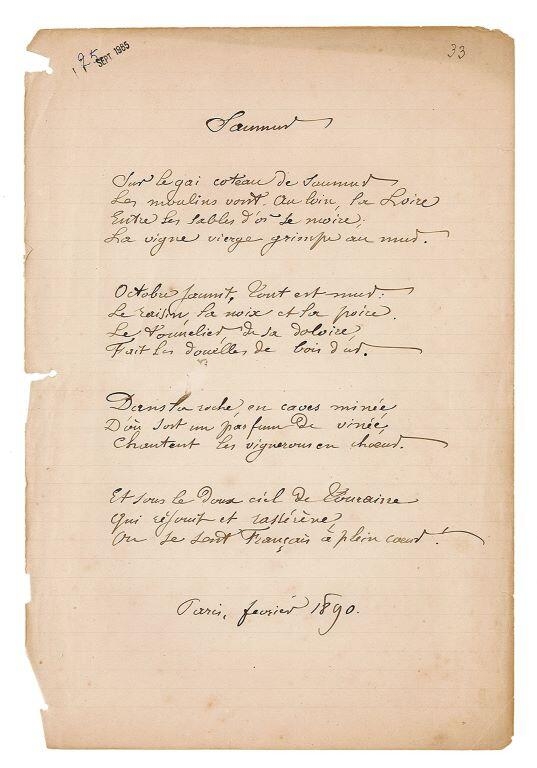 175 SEPT 1985
33
Saumur
Sur le gai coteau de Saumur
Les moulins vont. Au loin, la Loire
Entre les sables d'or se moire;
La vigne vierge grimpe au mur.
Octobre jaunit, tout est mur:
Le raisin, la noix et la poire.
Le tonnelier de sa doloire
Fait les douëlles de bois dur.
Dans la roche, en caves minée,
D'où sort un parfum de vinée,
Chantent les vignerons en chœur.
Et sous le doux ciel de Touraine
Qui réjouit et rassérène,
On se sent Français à plein cœur!
Paris, fevrier 1890.